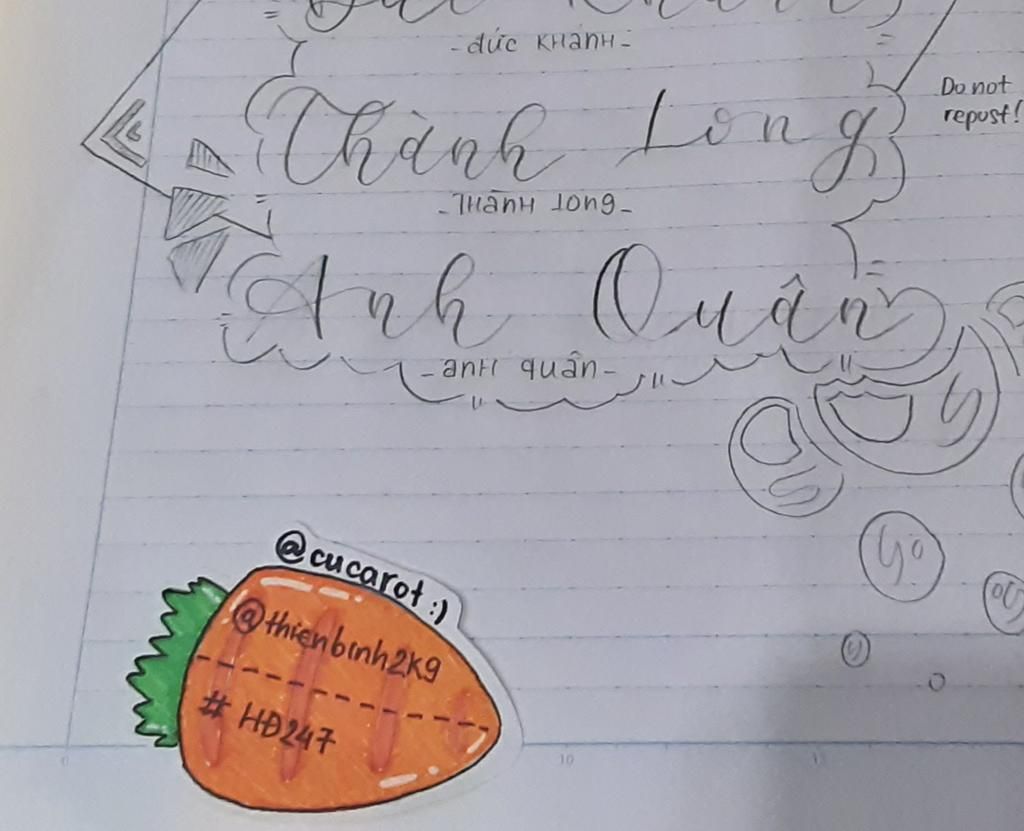 -đức KHÁNH-
Do not
repost!
Thành Long
-THÀNH LONG-
Anh Quân
-anH quân-
@cucarot :)
@thienbinh2k9
# HĐ247
10